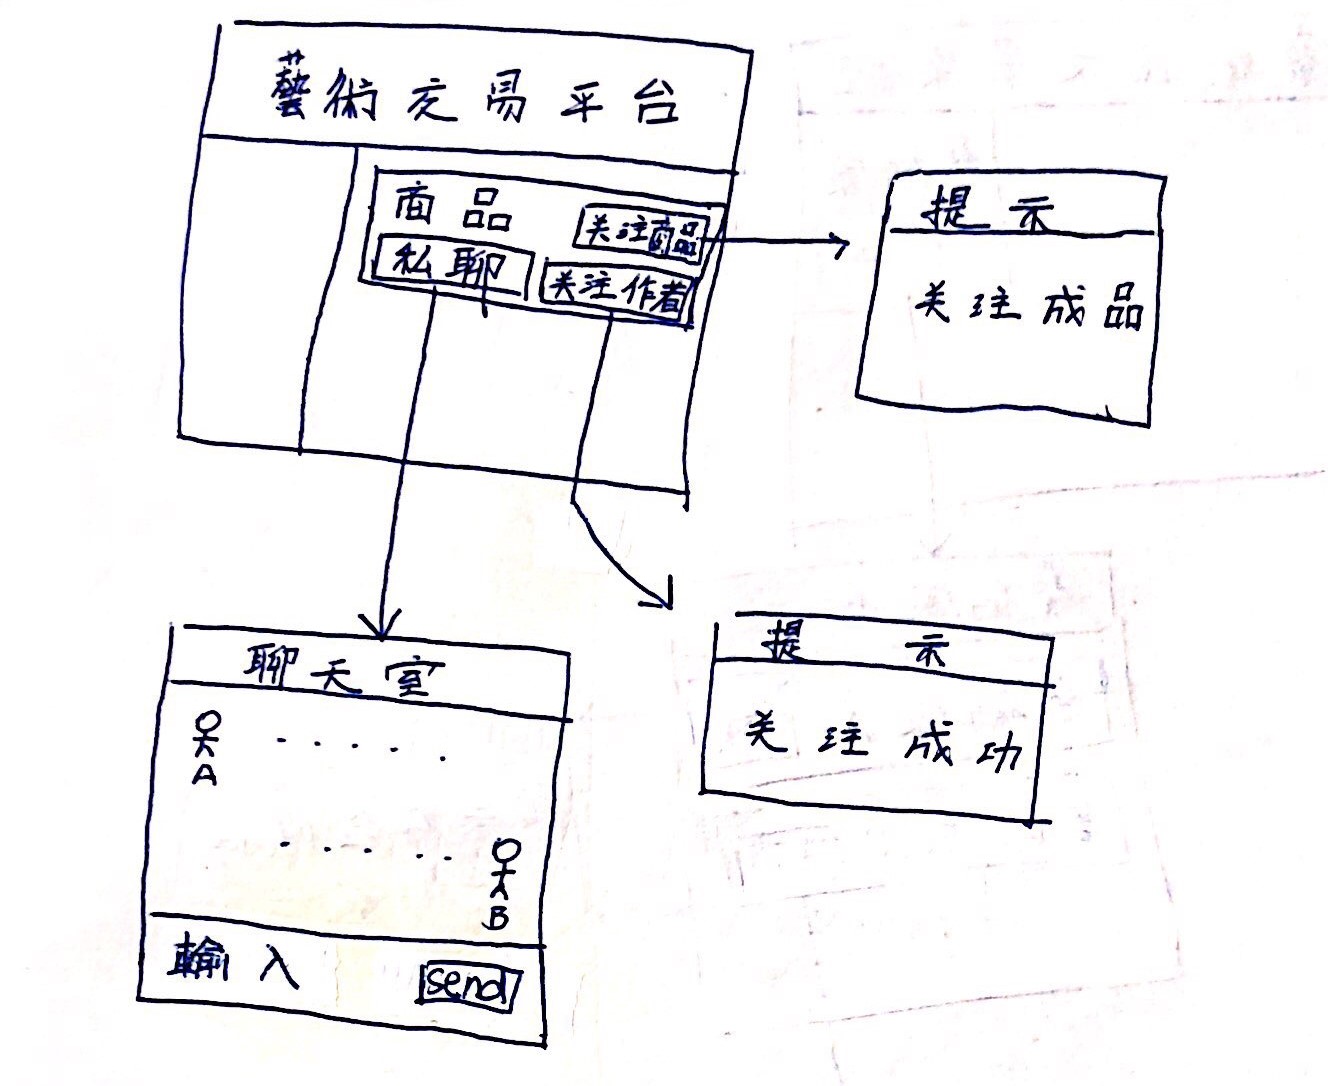 藝術交易平台
商品
关注商品
私聊
关注作者
提示
关注成品
聊天室
A
B
輸入
send
提示
关注成功